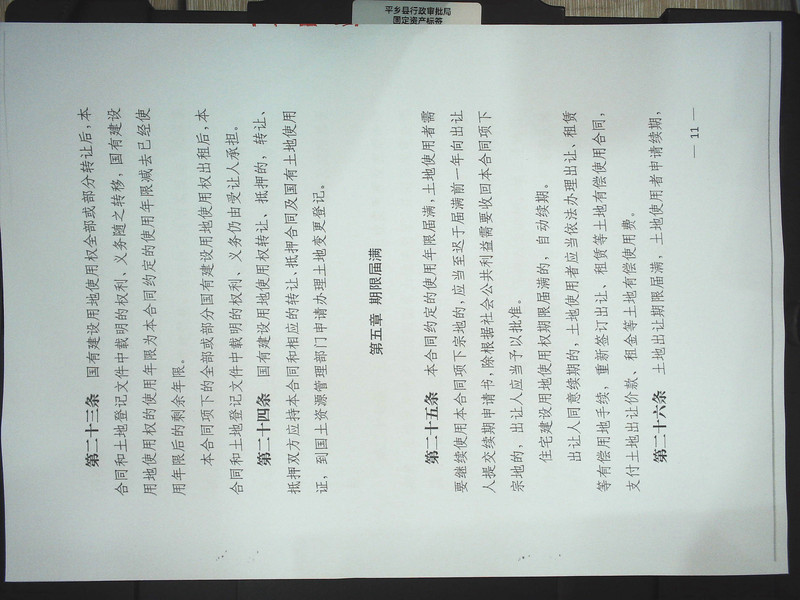 平乡县行政审批局
固定资产标签
第二十三条 国有建设用地使用权全部或部分转让后，本
合同和土地登记文件中载明的权利、义务随之转移，国有建设
用地使用权的使用年限为本合同约定的使用年限减去已经使
用年限后的剩余年限。
本合同项下的全部或部分国有建设用地使用权出租后，本
合同和土地登记文件中载明的权利、义务仍由受让人承担。
第二十四条 国有建设用地使用权转让、抵押的，转让、
抵押双方应持本合同和相应的转让、抵押合同及国有土地使用
证，到国土资源管理部门申请办理土地变更登记。
第五章 期限届满
第二十五条 本合同约定的使用年限届满，土地使用者需
要继续使用本合同项下宗地的，应当至迟于届满前一年向出让
人提交续期申请书，除根据社会公共利益需要收回本合同项下
宗地的，出让人应当予以批准。
住宅建设用地使用权期限届满的，自动续期。
出让人同意续期的，土地使用者应当依法办理出让、租赁
等有偿用地手续，重新签订出让、租赁等土地有偿使用合同，
支付土地出让价款、租金等土地有偿使用费。
第二十六条 土地出让期限届满，土地使用者申请续期，
— 11 —